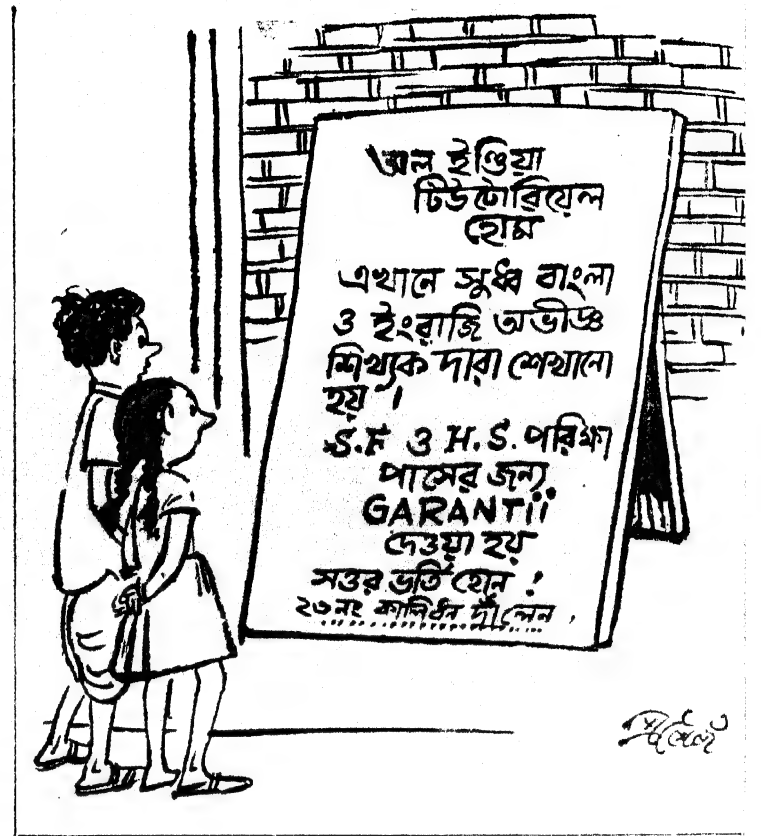 অল ইণ্ডিয়া
টিউটোরিয়েল
হোম
এখানে সুধ্ব বাংলা
ও ইংরাজি অভীজ্ঞ
শিখ্যক দারা শেখানো
হয় ।
S.F ও H.S. পরিক্ষা
পাসের জন্য
GARANTii
দেওয়া হয়
সত্তর ভর্তি হোন !
২৩ নং কালিধন দাঁ লেন